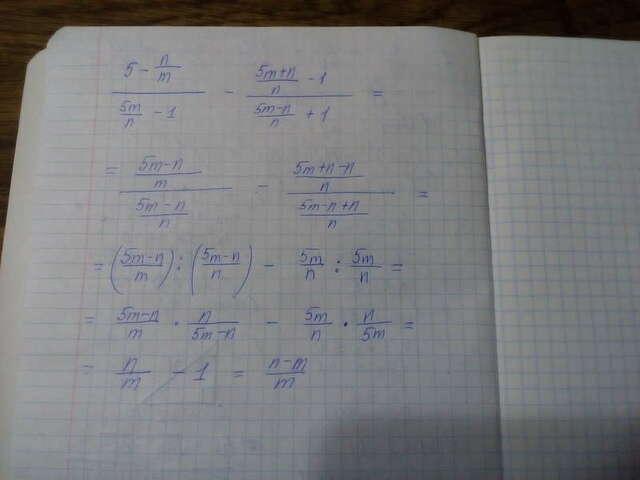 (5 - n/m)/(5m/n - 1) - ((5m+n)/n - 1)/((5m-n)/n + 1) =
= ((5m-n)/m)/((5m-n)/n) - ((5m+n-n)/n)/((5m-n+n)/n) =
= ((5m-n)/m) : ((5m-n)/n) - 5m/n : 5m/n =
= (5m-n)/m · n/(5m-n) - 5m/n · n/5m =
= n/m - 1 = (n-m)/m